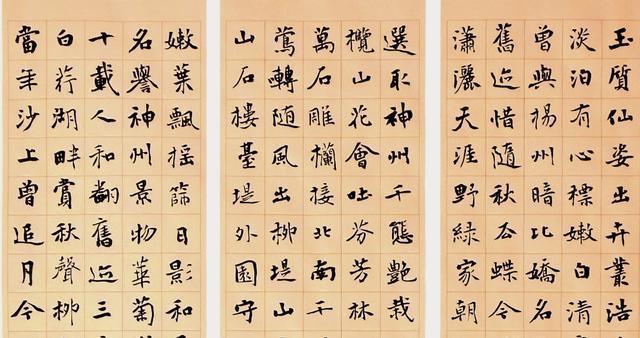 玉質仙姿出卉叢浩
淡泊有心標嫩白清
曾與楊州暗比嬌名
舊迹惜隨秋瓜蝶今
瀟灑天涯野綠家朝
選取神州千態艷栽
欖山花會吐芬芳林
萬石雕欄接北南千
鶯轉隨風出柳堤山
山石樓臺堤外園守
嫩葉飄搖篩日影和
名譽神州景物華菊
十載人和翻舊迹三
白荇湖畔賞秋聲柳
當年沙上曾追月今